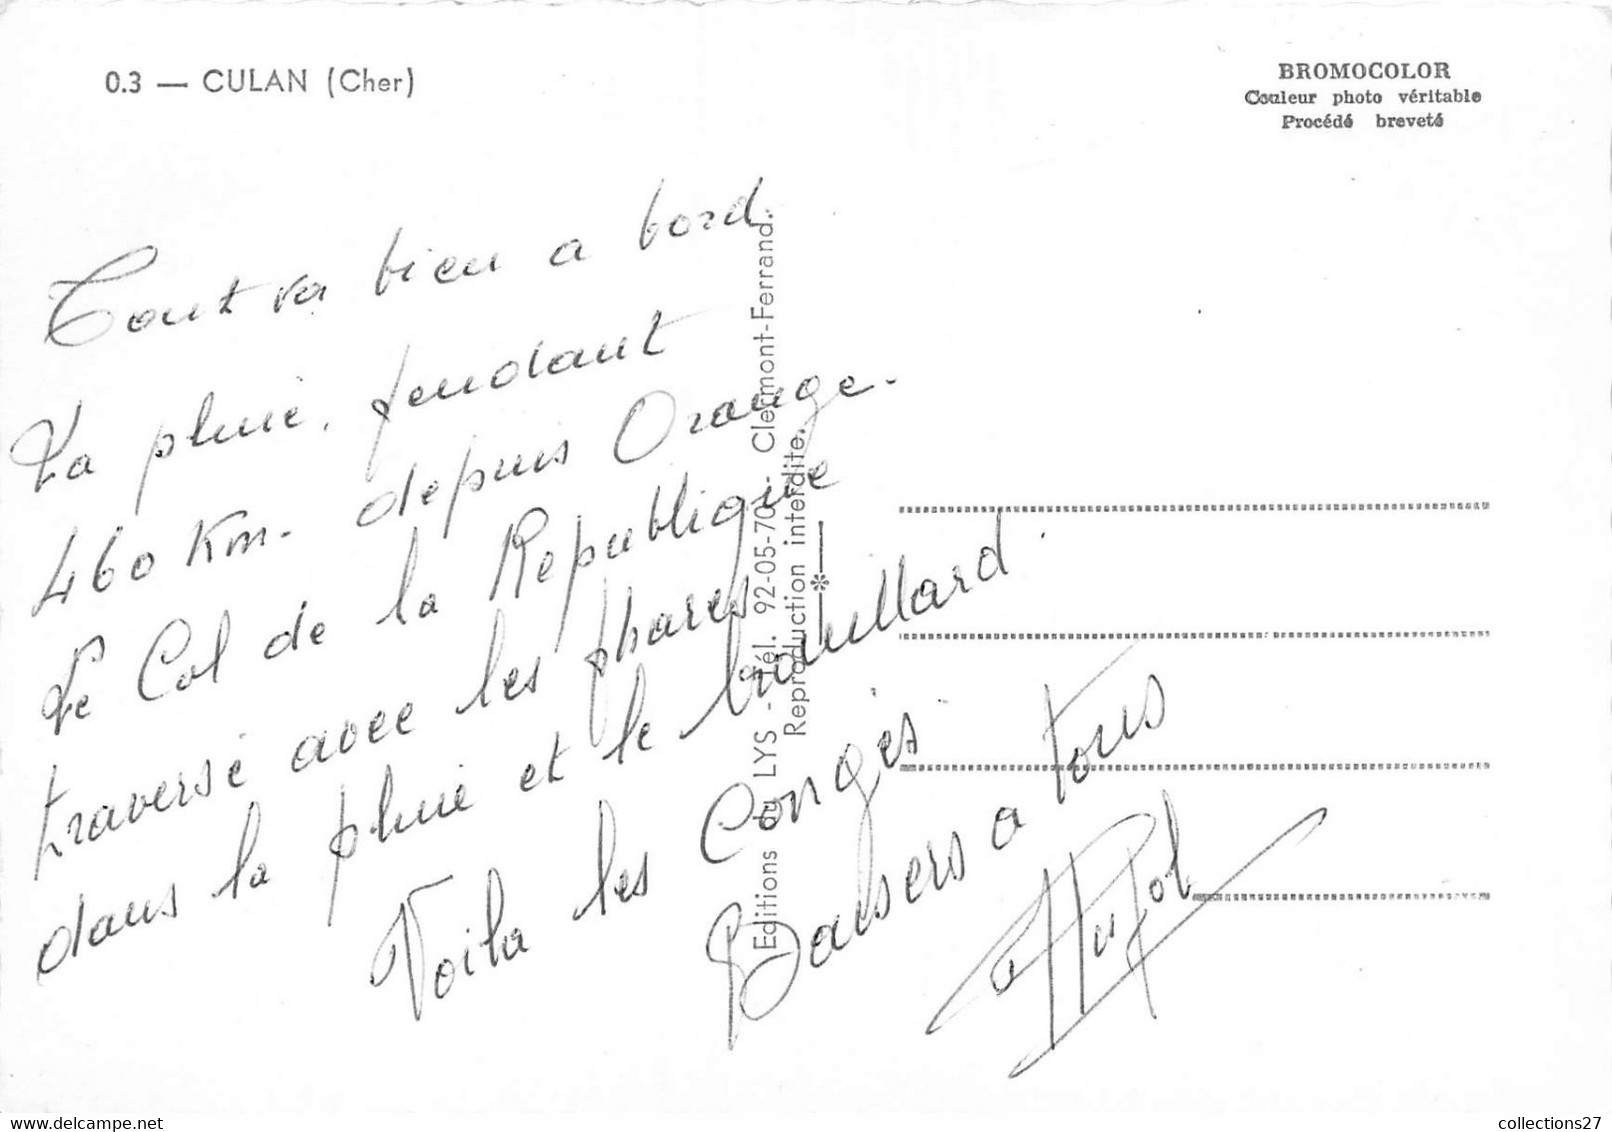 0.3 — CULAN (Cher)
BROMOCOLOR
Couleur photo véritable
Procédé breveté
Tout va bien a bord.
La pluie, fendant
460 Km. depuis Orange.
Le Col de la Republique
traversé avec les phares
dans la pluie et le brouillard.
Voila les Congés
Baisers a tous
Pujol
Editions du LYS - Tél. 92-05-70 - Clermont-Ferrand.
Reproduction interdite.
collections27